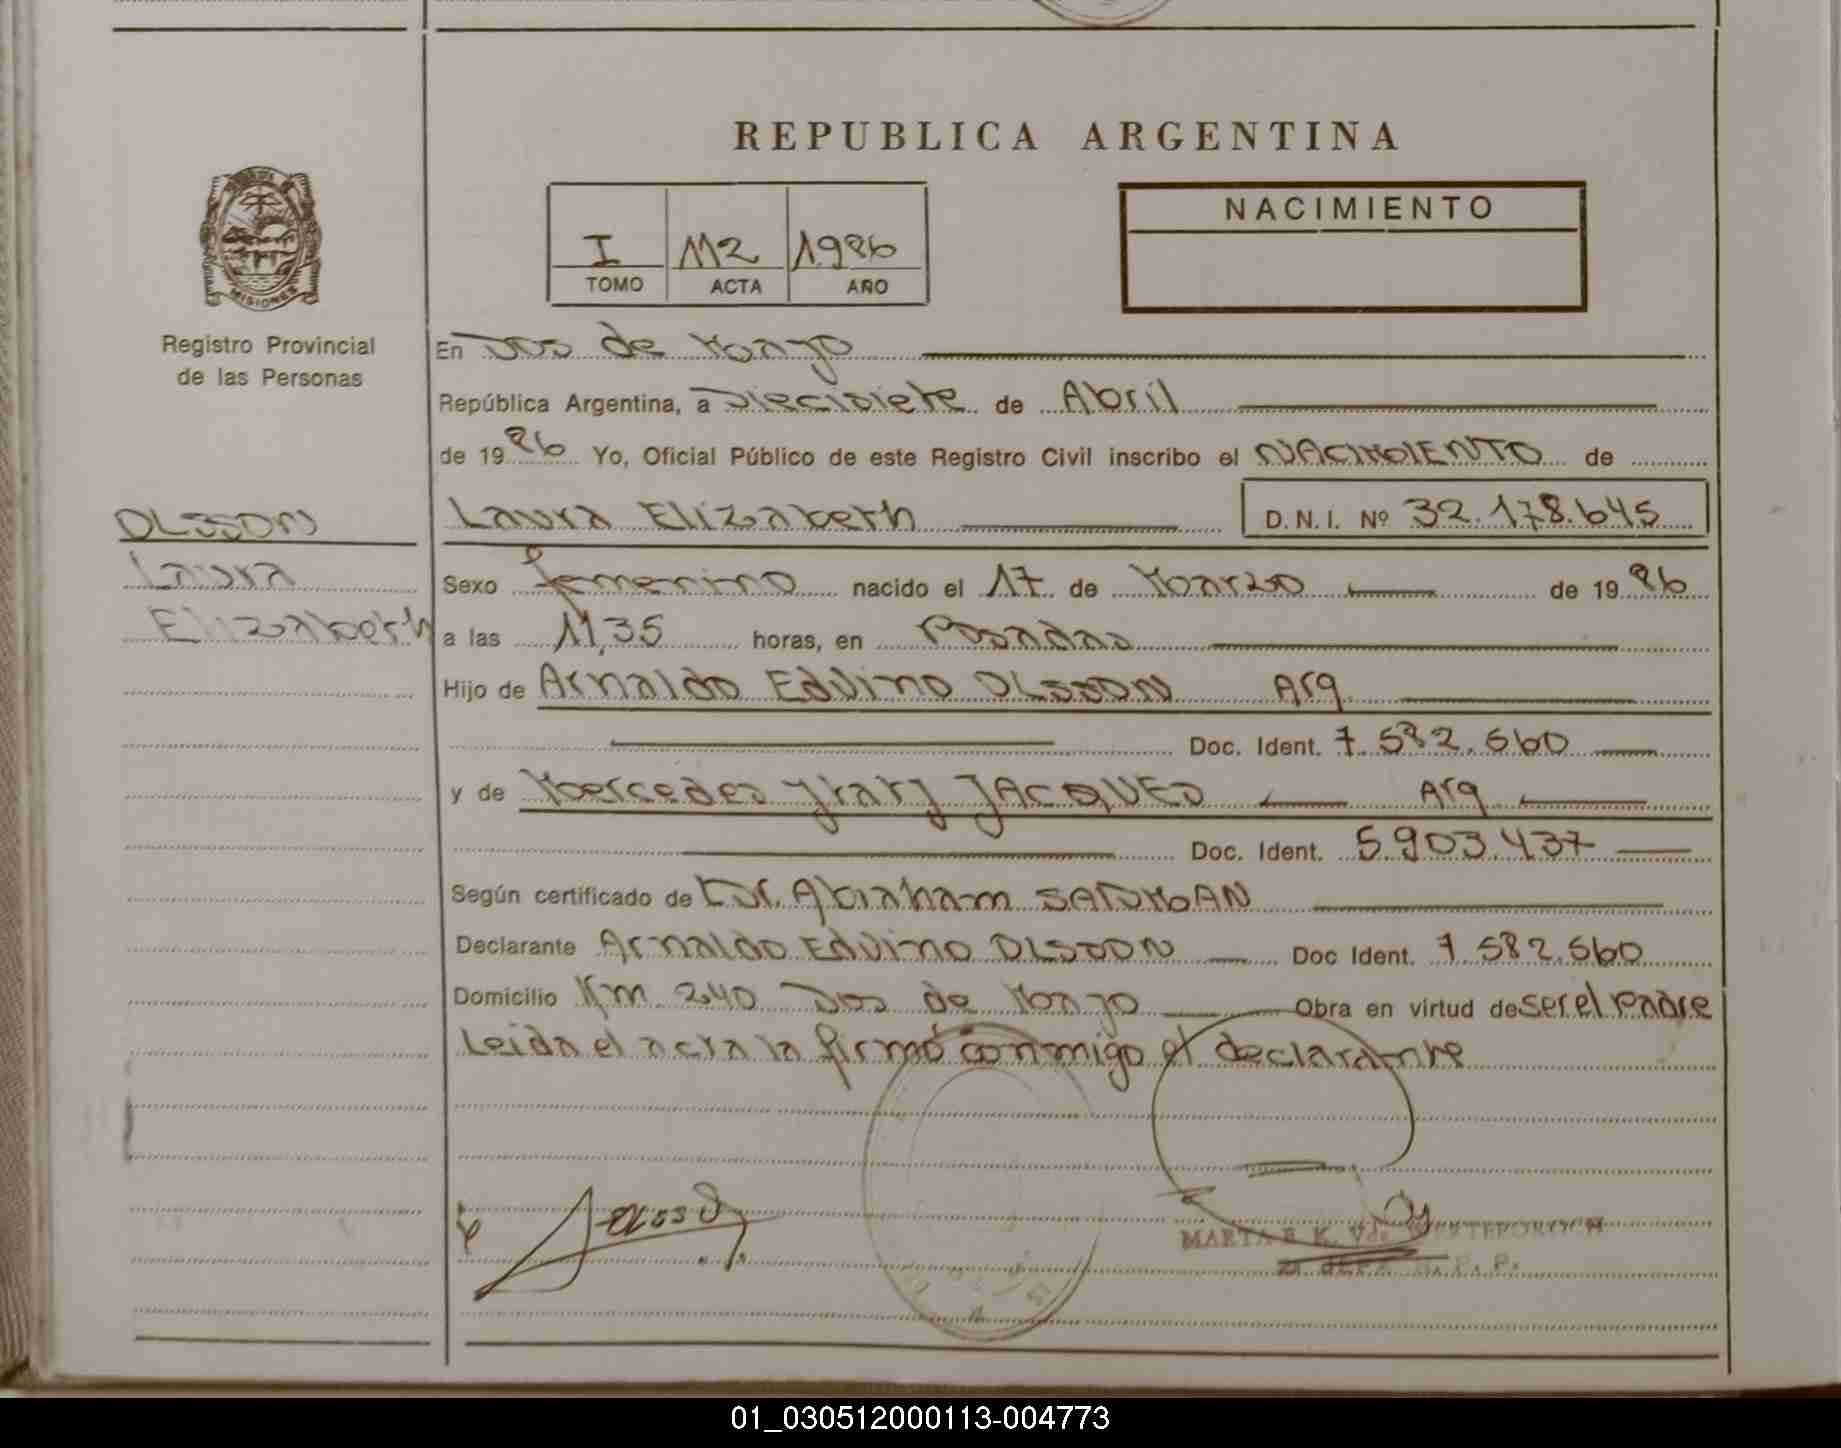 REPUBLICA ARGENTINA
I 112 1986
TOMO ACTA AÑO
NACIMIENTO
MISIONES
Registro Provincial
de las Personas
En Dos de Mayo
República Argentina, a Diecisiete de Abril
de 1986 Yo, Oficial Público de este Registro Civil inscribo el NACIMIENTO de
OLSSON
Laura
Elizabeth
Laura Elizabeth D.N.I. Nº 32.178.645
Sexo femenino nacido el 17 de Marzo de 1986
a las 11,35 horas, en Posadas
Hijo de Arnaldo Edvino OLSSON Arg.
Doc. Ident. 7.582.560
y de Mercedes JACQUES Arg
Doc. Ident. 5.903.437
Según certificado de Dr. Abraham
Declarante Arnaldo Edvino OLSSON Doc Ident. 7.582.560
Domicilio Km 240 Dos de Mayo Obra en virtud de ser el Padre
Leida el acta la firmó conmigo el declarante
MARTA E K. Vda.
JEFE R. P. P.
01_030512000113-004773